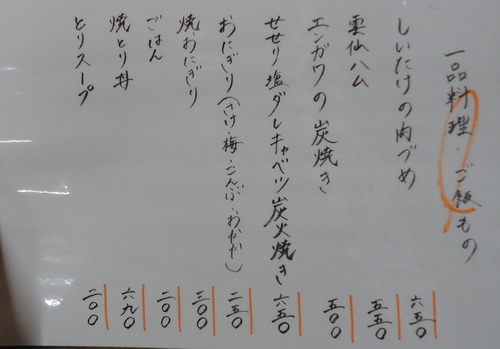 一品料理・ご飯もの
しいたけの肉づめ 六五〇
雲仙ハム 五五〇
エンガワの炭焼き 五〇〇
せせり塩ダレキャベツ炭火焼き 六五〇
おにぎり(さけ・梅・こんぶ・おかか) 二五〇
焼おにぎり 三〇〇
ごはん 二〇〇
焼とり丼 六九〇
とりスープ 二〇〇